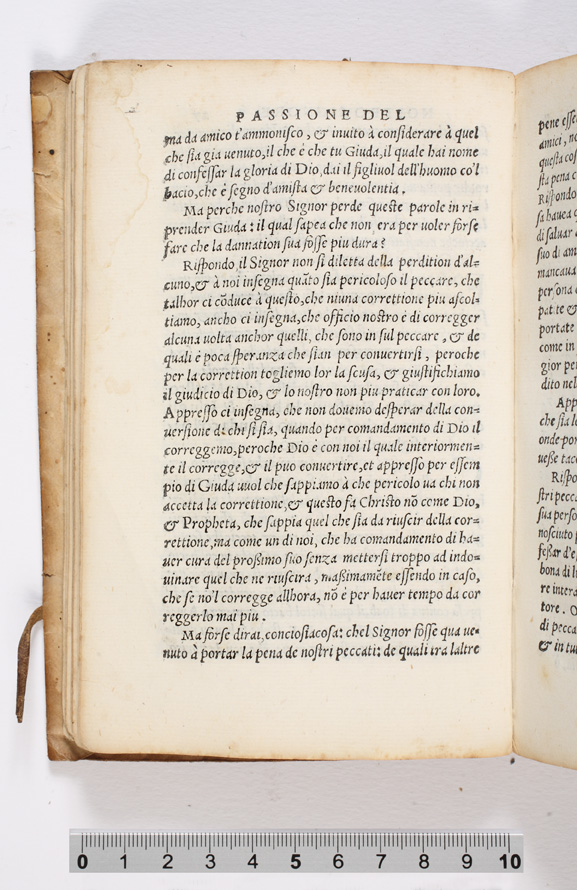 PASSIONE DEL
ma da amico t'ammonisco, & inuito à considerare à quel
che sia gia uenuto, il che è che tu Giuda, il quale hai nome
di confessar la gloria di Dio, dai il figliuol dell'huomo co'l
bacio, che è segno d'amista & beneuolentia.
Ma perche nostro Signor perde queste parole in ri=
prender Giuda: il qual sapea che non era per uoler forse
fare che la dannation sua fosse piu dura?
Rispondo, il Signor non si diletta della perdition d'al=
cuno, & à noi insegna quãto sia pericoloso il peccare, che
talhor ci cõduce à questo, che niuna correttione piu ascol=
tiamo, ancho ci insegna, che officio nostro è di corregger
alcuna uolta anchor quelli, che sono in sul peccare, & de
quali è poca speranza che sian per conuertirsi, peroche
per la correttion togliemo lor la scusa, & giustifichiamo
il giudicio di Dio, & lo nostro non piu praticar con loro.
Appresso ci insegna, che non douemo desperar della con=
uersione di chi si sia, quando per comandamento di Dio il
correggemo, peroche Dio è con noi il quale interiormen=
te il corregge, & il puo conuertire, et appresso per essem
pio di Giuda uuol che sappiamo à che pericolo ua chi non
accetta la correttione, & questo fa Christo nõ come Dio,
& Propheta, che sappia quel che sia da riuscir della cor=
rettione, ma come un di noi, che ha comandamento di ha=
uer cura del prossimo suo senza mettersi troppo ad indo=
uinare quel che ne riuscira, massimamẽte essendo in caso,
che se no'l corregge allhora, nõ è per hauer tempo da cor
reggerlo mai piu.
Ma forse dirai, conciosiacosa: chel Signor fosse qua ue=
nuto à portar la pena de nostri peccati: de quali tra laltre
pene esse
amici, no
questa cos
sta pena c
Rispondo
sa hauea
di saluar
suo di am
mancaua
persona
portate
come in
gior pe
dito nel
App
che sia l
onde por
uesse tac
Rispo
stri pecc
sua perso
nosciuto
fessar d'e
bona di
re intera
tore.
di pecca
& in tu
0 1 2 3 4 5 6 7 8 9 10